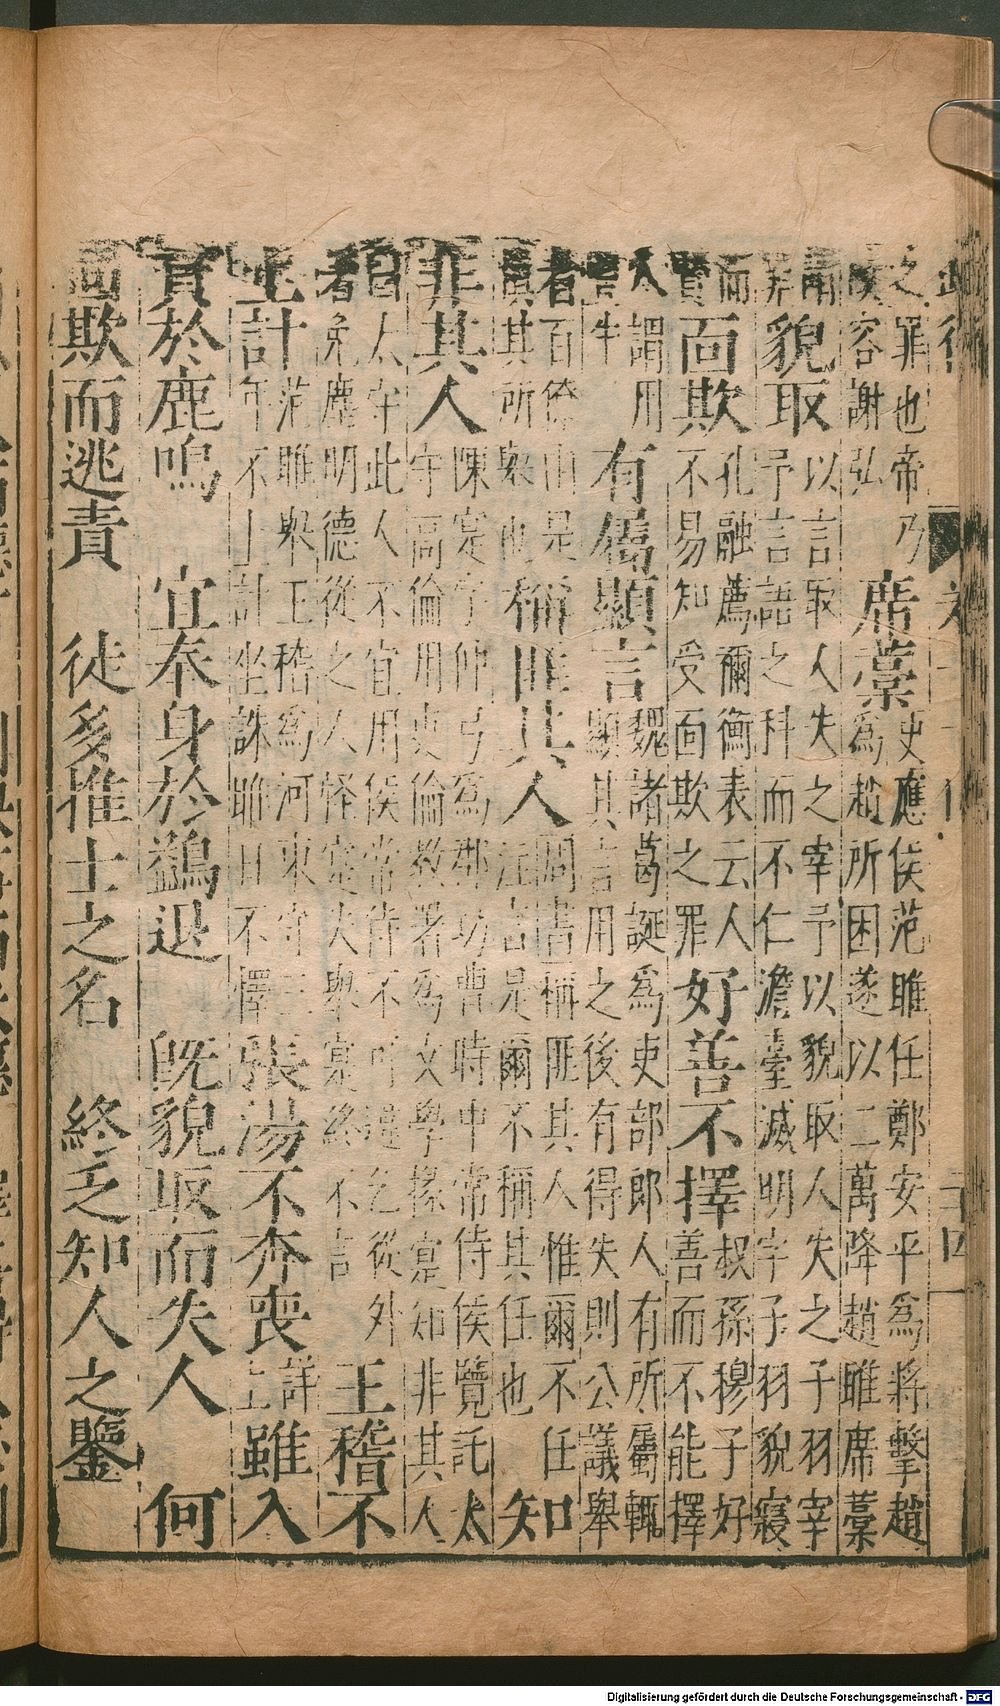 之罪也帝乃
容謝弘
席藁
史應侯范雎任鄭安平為將擊趙
為趙所困遂以二萬降趙雎席藁
請
罪
貌取
以言取人失之宰予以貌取人失之子羽宰
予言語之科而不仁澹臺滅明字子羽貌寢
而
賢
面欺
孔融薦禰衡表云人
不易知受面欺之罪
好善不擇
叔孫穆子好
善而不能擇
人謂用
豎牛
有僞顯言
魏諸葛誕為吏部郎人有所屬輒
顯其言用之後有得失則公議舉
者百僚由是
慎其所舉也
稱匪其人
周書稱匪其人惟爾不任
注言是爾不稱其任也
知
非其人
陳寔字仲弓為郡功曹時中常侍侯覽託太
守高倫用吏倫教署為文學掾寔知非其人
白太守此人不宜用侯常侍不可違乞從外
署免塵明德從之人怪寔失舉寔終不言
王稽不
上計
范雎舉王稽為河東守三
年不上計坐誅雎日不懌
張湯不奔喪
詳
上
雖入
賞於鹿鳴 宜奉身於鷁退 既貌取而失人 何
面欺而逃責 徒多惟士之名 終乏知人之鑒
Digitalisierung gefördert durch die Deutsche Forschungsgemeinschaft - DFG